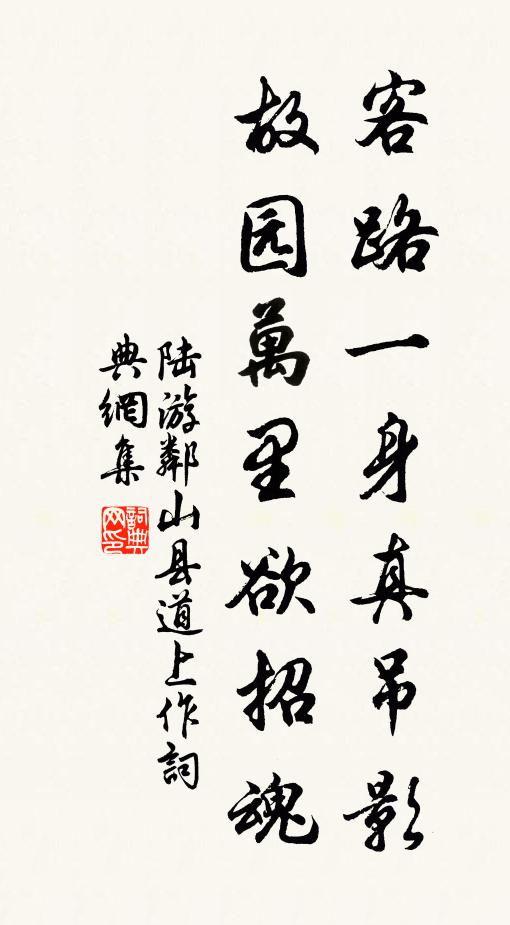 客路一身真吊影
故园萬里欲招魂
陆游鄰山县道上作詞
典網集
詞典网印